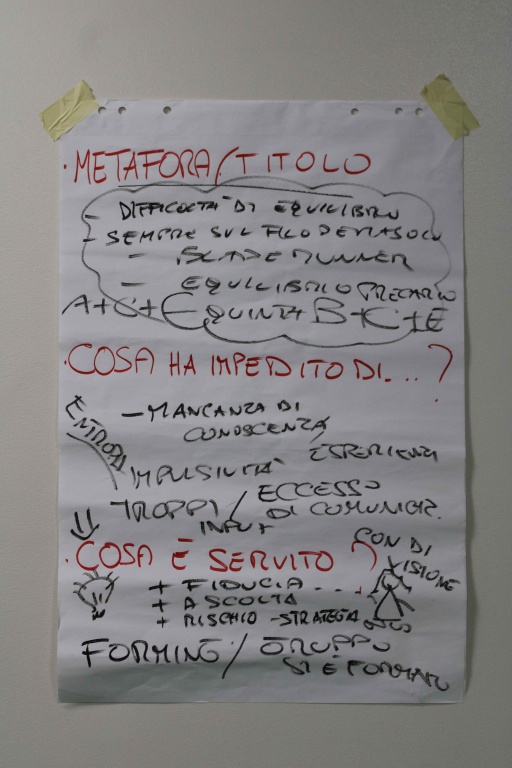 · METAFORA/TITOLO
- DIFFICOLTÀ DI EQUILIBRIO
- SEMPRE SUL FILO DEL RASOIO
- BLADE RUNNER
- EQUILIBRIO PRECARIO
A+C+E QUINDI B+C+E
· COSA HA IMPEDITO DI...?
ENTROPIA
- MANCANZA DI
CONOSCENZA/
ESPERIENZA
IMPULSIVITÀ
TROPPI / ECCESSO
INPUT DI COMUNICAZ.
· COSA È SERVITO ?
CONDI
VISIONE
+ FIDUCIA
+ ASCOLTO
+ RISCHIO - STRATEGIA
FORMING / GRUPPO
SI È FORMATO